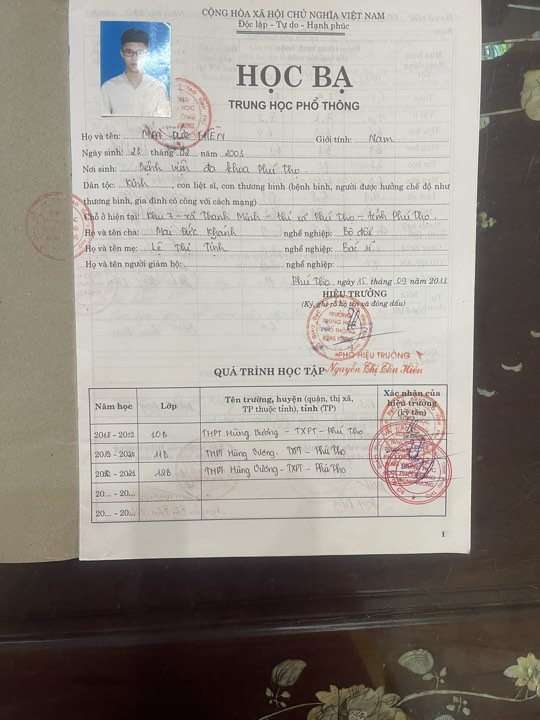 CỘNG HÒA XÃ HỘI CHỦ NGHĨA VIỆT NAM
Độc lập - Tự do - Hạnh phúc
HỌC BẠ
TRUNG HỌC PHỔ THÔNG
Họ và tên: Mai Đức Hiển Giới tính: Nam
Ngày sinh: 25 tháng 02 năm 2003
Nơi sinh: Bệnh viện đa khoa Phú Thọ
Dân tộc: Kinh, con liệt sĩ, con thương binh (bệnh binh, người được hưởng chế độ như
thương binh, gia đình có công với cách mạng)
Chỗ ở hiện tại: Khu 7 - xã Thanh Minh - thị xã Phú Thọ - tỉnh Phú Thọ.
Họ và tên cha: Mai Đức Khánh nghề nghiệp: Bộ đội
Họ và tên mẹ: Lê Thị Tính nghề nghiệp: Bác sĩ
Họ và tên người giám hộ: nghề nghiệp:
Phú Thọ, ngày 15 tháng 09 năm 2018
HIỆU TRƯỞNG
(Ký, ghi rõ họ tên và đóng dấu)
TRƯỜNG
TRUNG HỌC
PHỔ THÔNG
HÙNG VƯƠNG
PHÓ HIỆU TRƯỞNG
Nguyễn Thị Thu Hiền
QUÁ TRÌNH HỌC TẬP
Năm học Lớp Tên trường, huyện (quận, thị xã, TP thuộc tỉnh), tỉnh (TP) Xác nhận của hiệu trưởng (ký tên)
2018 - 2019 10B THPT Hùng Vương - TXPT - Phú Thọ
2019 - 2020 11B THPT Hùng Vương - TXPT - Phú Thọ
2020 - 2021 12B THPT Hùng Vương - TXPT - Phú Thọ
20... - 20...
20... - 20...
1